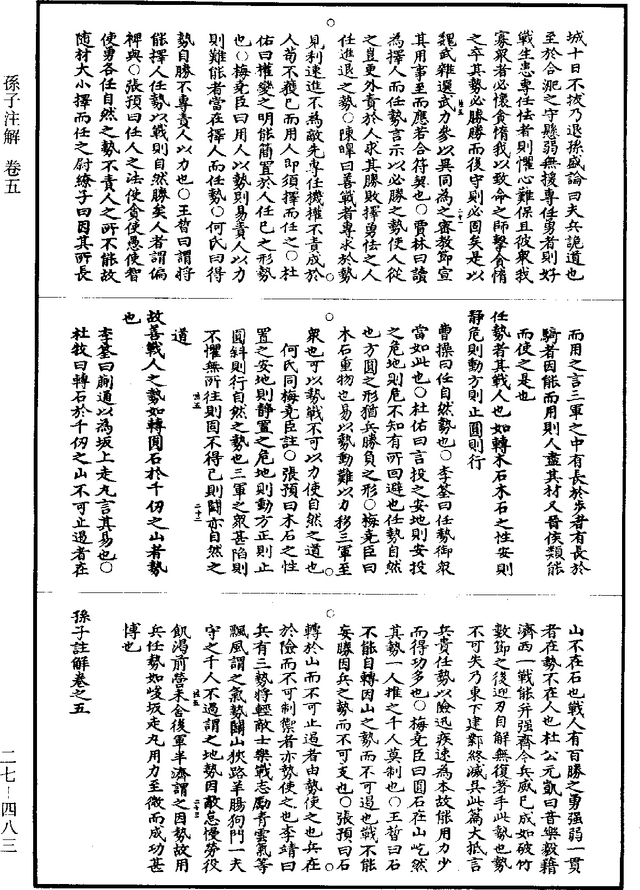 城十日不拔乃退孫盛論曰夫兵詭道也
至於合淝之守懸弱無援專任勇者則好
戰生患專任怯者則懼心難保且彼衆我
寡衆者必懷貪惰我以致命之師擊貪惰
之卒其勢必勝勝而後守則必固矣是以
魏武雜選武力參以異同為之密教節宣
其用事至而應若合符契也○賈林曰讀
為擇人而任勢言示以必勝之勢使人從
之豈更外責於人求其勝敗擇勇怯之人
任進退之勢○陳皥曰善戰者專求於勢
見利速進不為敵先專任機權不責成於
人苟不獲已而用人即須擇而任之○杜
佑曰權變之明能簡置於人任已之形勢
也○梅堯臣曰用人以勢則易責人以力
則難能者當在擇人而任勢○何氏曰得
勢自勝不專責人以力也○王晳曰謂將
能擇人任勢以戰則自然勝矣人者謂偏
裨與○張預曰任人之法使貪使愚使智
使勇各任自然之勢不責人之所不能故
隨材大小擇而任之尉繚子曰因其所長
而用之言三軍之中有長於步者有長於
騎者因能而用則人盡其材又晉侯類能
而使之是也
任勢者其戰人也如轉木石木石之性安則
靜危則動方則止圓則行
曹操曰任自然勢也○李筌曰任勢御衆
當如此也○杜佑曰言投之安地則安投
之危地則危不知有所回避也任勢自然
也方圓之形猶兵勝負之形○梅堯臣曰
木石重物也易以勢動難以力移三軍至
衆也可以勢戰不可以力使自然之道也
何氏同梅堯臣註○張預曰木石之性
置之安地則靜置之危地則動方正則止
圓斜則行自然之勢也三軍之衆甚陷則
不懼無所往則固不得已則鬪亦自然之
道
故善戰人之勢如轉圓石於千仞之山者勢
也
李筌曰蒯通以為坂上走丸言其易也○
杜牧曰轉石於千仞之山不可止遏者在
山不在石也戰人有百勝之勇強弱一貫
者在勢不在人也杜公元凱曰昔樂毅藉
濟西一戰能并強齊今兵威已成如破竹
數節之後迎刃自解無復著手此勢也勢
不可失乃東下建鄴終滅吳此篇大抵言
兵貴任勢以險迅疾速為本故能用力少
而得功多也○梅堯臣曰圓石在山屹然
其勢一人推之千人莫制也○王晳曰石
不能自轉因山之勢而不可遏也戰不能
妄勝因兵之勢而不可支也○張預曰石
轉於山而不可止遏者由勢使之也兵在
於險而不可制禦者亦勢使之也李靖曰
兵有三勢將輕敵士樂戰志勵青雲氣等
飄風謂之氣勢關山狹路羊腸狗門一夫
守之千人不過謂之地勢因敵怠慢勞役
飢渴前營未舍後軍半濟謂之因勢故用
兵任勢如峻坂走丸用力至微而成功甚
愽也
孫子註解卷之五
孫子注解 卷五
二七-四八三